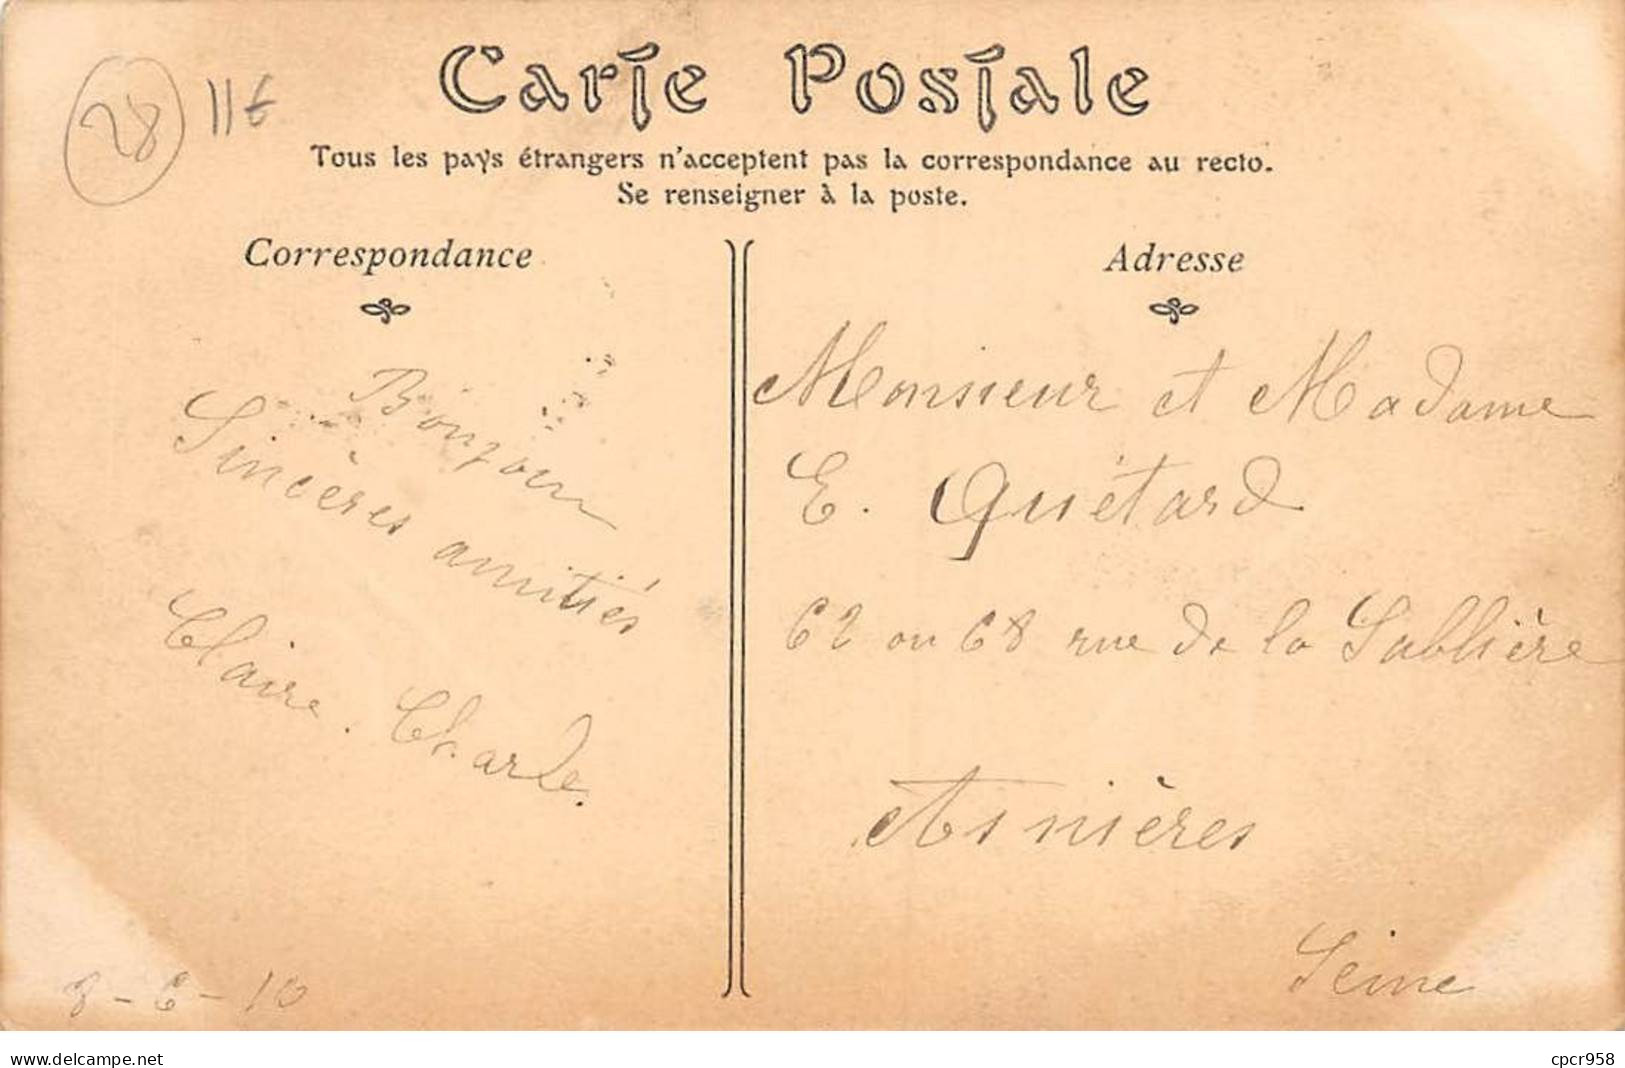 28 11€
Carte Postale
Tous les pays étrangers n'acceptent pas la correspondance au recto.
Se renseigner à la poste.
Correspondance
Bonjour
Sincères amitiés
Claire. Charle.
8-6-10
Adresse
Monsieur et Madame
E. Quétard
62 ou 68 rue de la Sablière
Asnières
Seine
www.delcampe.net
cpcr958